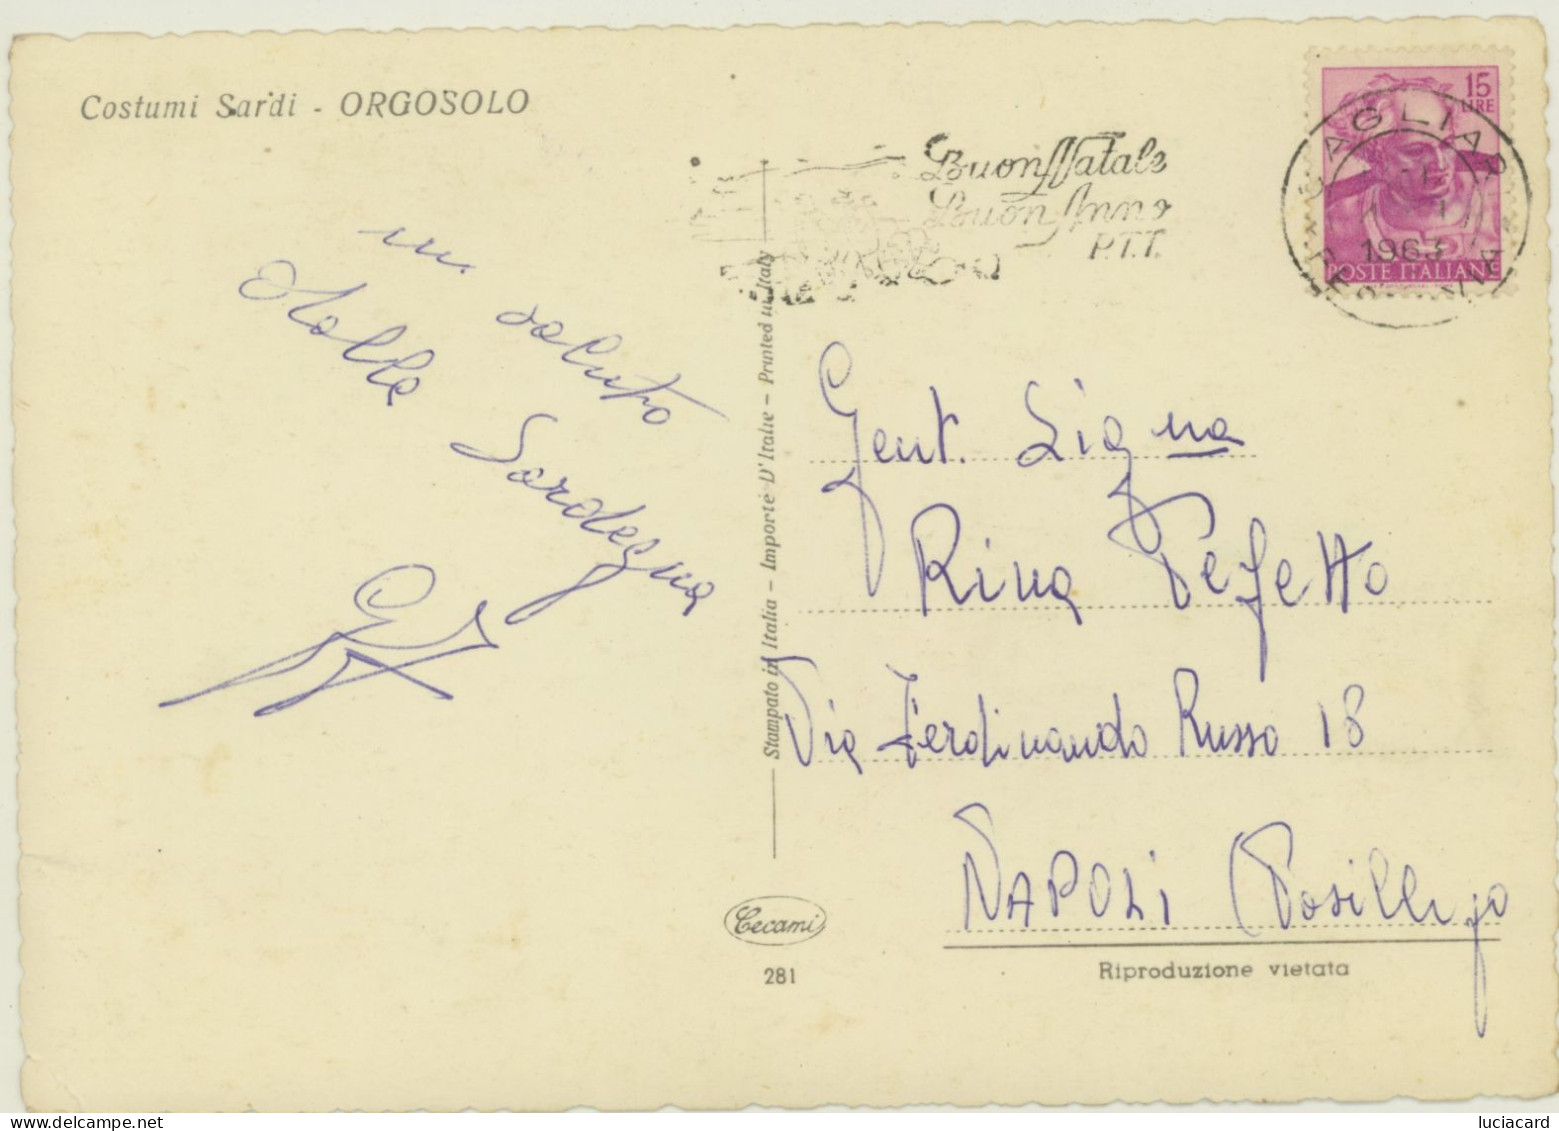 Costumi Sardi - ORGOSOLO
15
LIRE
POSTE ITALIANE
CAGLIARI
1963
Buon Natale
Buon Anno
P.T.T.
un saluto
dalla Sardegna
Stampato in Italia - Importé D'Italie - Printed in Italy
Gent. Sig.na
Rina Pefetto
Via Ferdinando Russo 18
NAPOLI (Posillipo
Cecami
281
Riproduzione vietata
luciacard